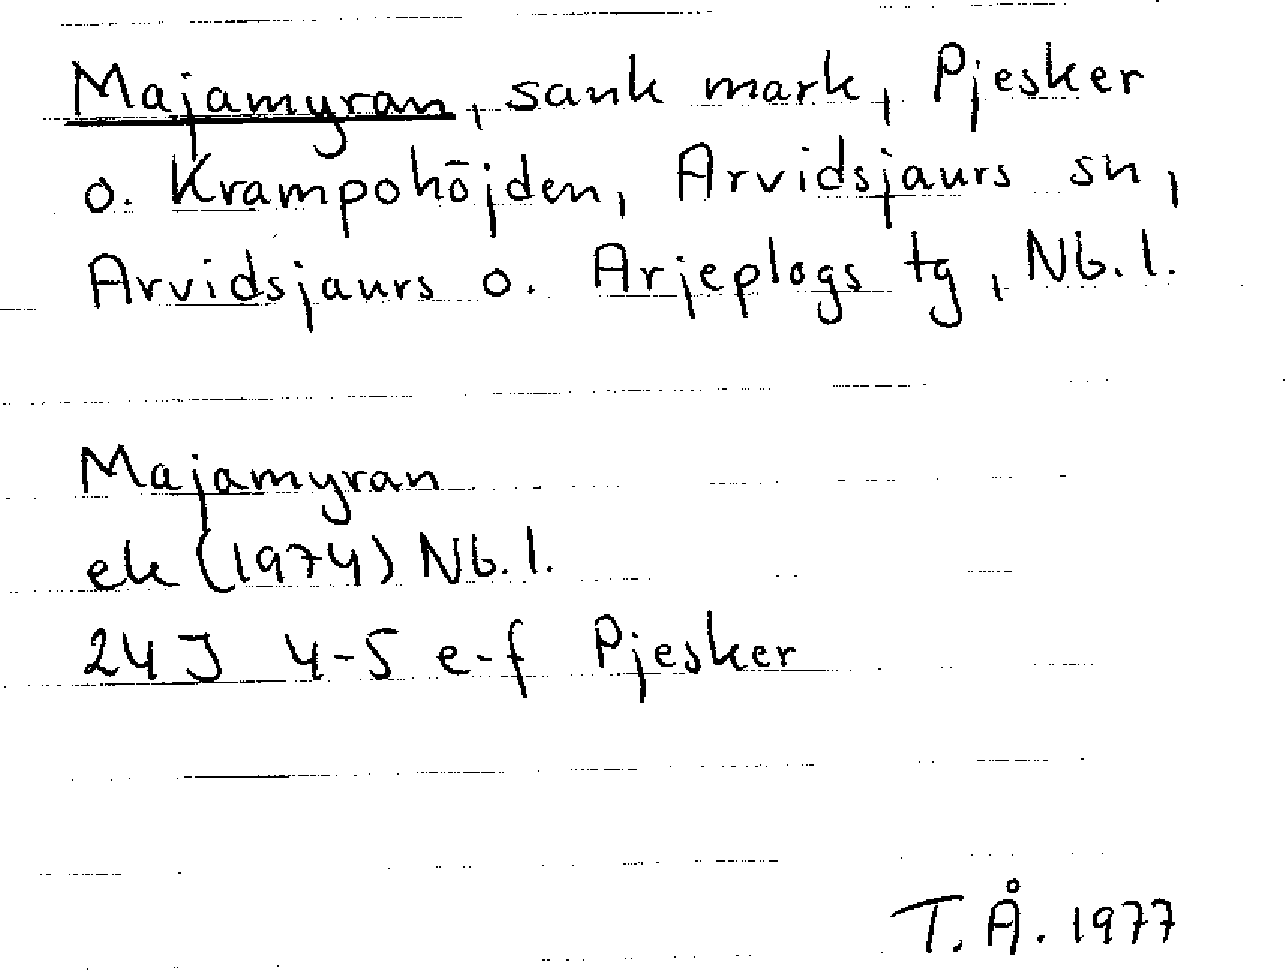 Majamyran, sank mark, Pjesker
o. Krampohöjden, Arvidsjaurs sn,
Arvidsjaurs o. Arjeplogs tg, Nb. l.
Majamyran
ek (1974) Nb. l.
24J 4-5 e-f Pjesker
T.Å. 1977